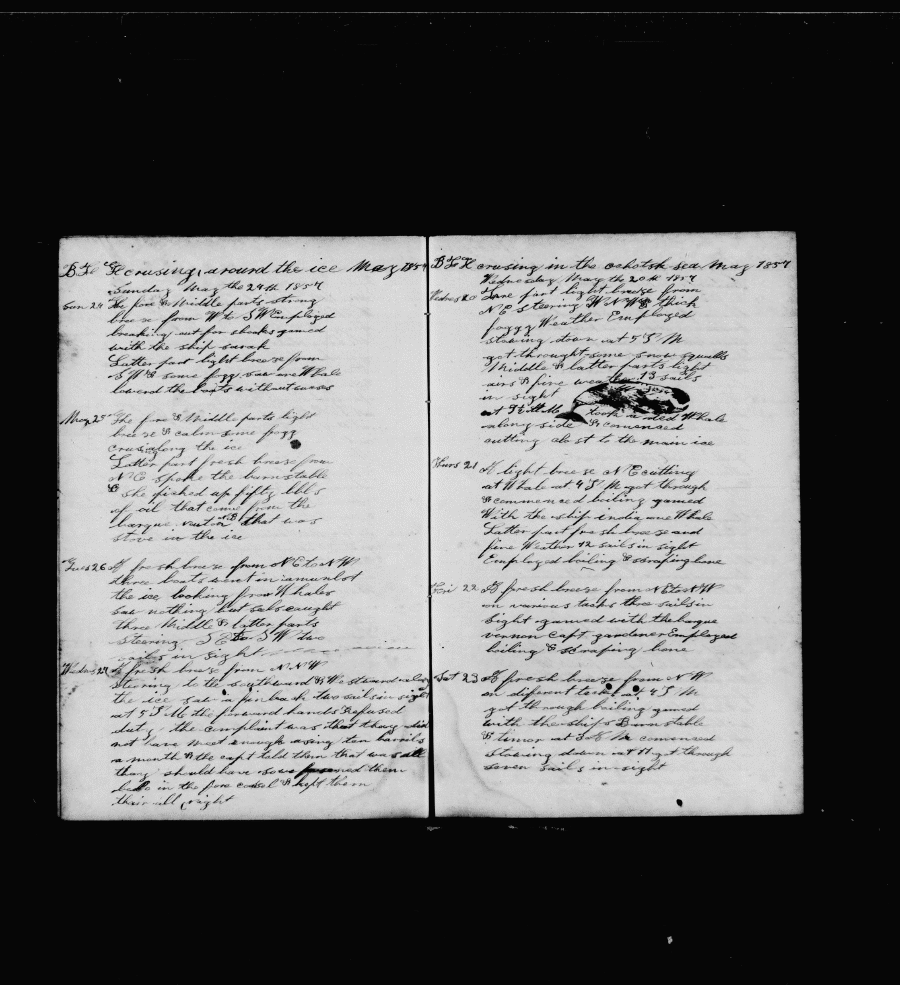 crusing around the ice May 1857
Sunday May the 24th 1857
Sun 24 The fore & Middle parts strong
breese from W to SW Employed
breaking out for shooks gamed
with the ship
Latter part light breese from
SW & some foggy saw one Whale
lowerd the boats without sucses
May 25 The fore & Middle parts light
breese & calm some fogg
crus along the ice
Latter part fresh breese from
NE spoke the barnstable
& she picked up fifty bbls
of oil that come from the
barque newton that was
stove in the ice
Tues 26 A fresh breese from NE to NW
three boats went in amunkst
the ice looking for Whales
saw nothing but seals caught
three Middle & latter parts
steering S E to S W two
sailes in sight
A fresh breese from N N W
steering to the southward & Westward along
the ice saw a finback two sails in sight
at 5 P M the forward hands refused
duty, the complaint was that thay did
not have meat enough using ten barrils
a month & the capt told them that was all
thay should have some them
in the fore & kept them
their all right
crusing in the ochotsk sea May 1857
Wednesday May the 20th 1857
Wednes 20 Fore part light breese from
N E steering W N W & thick
foggy Weather Employed
stowing down at 4 P M
got throught some snow squalls
Middle & latter parts light
airs & fine weather 13 sails
in sight
at took a ded Whale
along side & comenced
cutting clost to the main ice
Thurs 21 A light breese N E cutting
at Whale at 4 P M got through
& commenced boiling gamed
With the ship india one Whale
Latter part fresh breese and
fine Weather 12 sails in sight
Employed boiling & scraping bone
Fri 22 A fresh breese from N E to N W
on various tacks thre sails in
sight gamed with the barque
vernon capt gardener Employed
boiling & scraping bone
Sat 23 A fresh breese from N W
on diferent tacks at 4 P M
got through boiling gamed
with the ships Barnstable
& timor at M comenced
stowing down at 11 got through
seven sails in sight